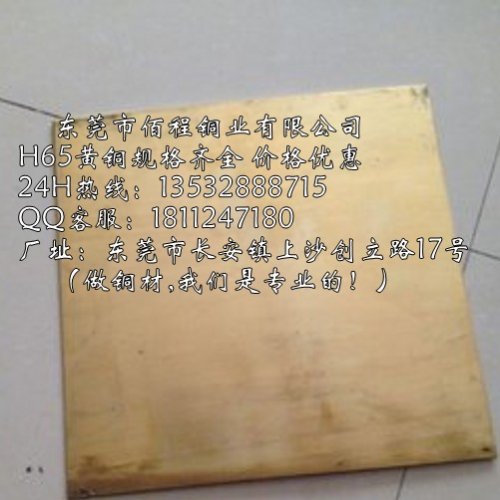 东莞市佰程铜业有限公司
H65黄铜规格齐全 价格优惠
24H热线：13532888715
QQ客服：1811247180
厂址：东莞市长安镇上沙创立路17号
（做铜材,我们是专业的！）